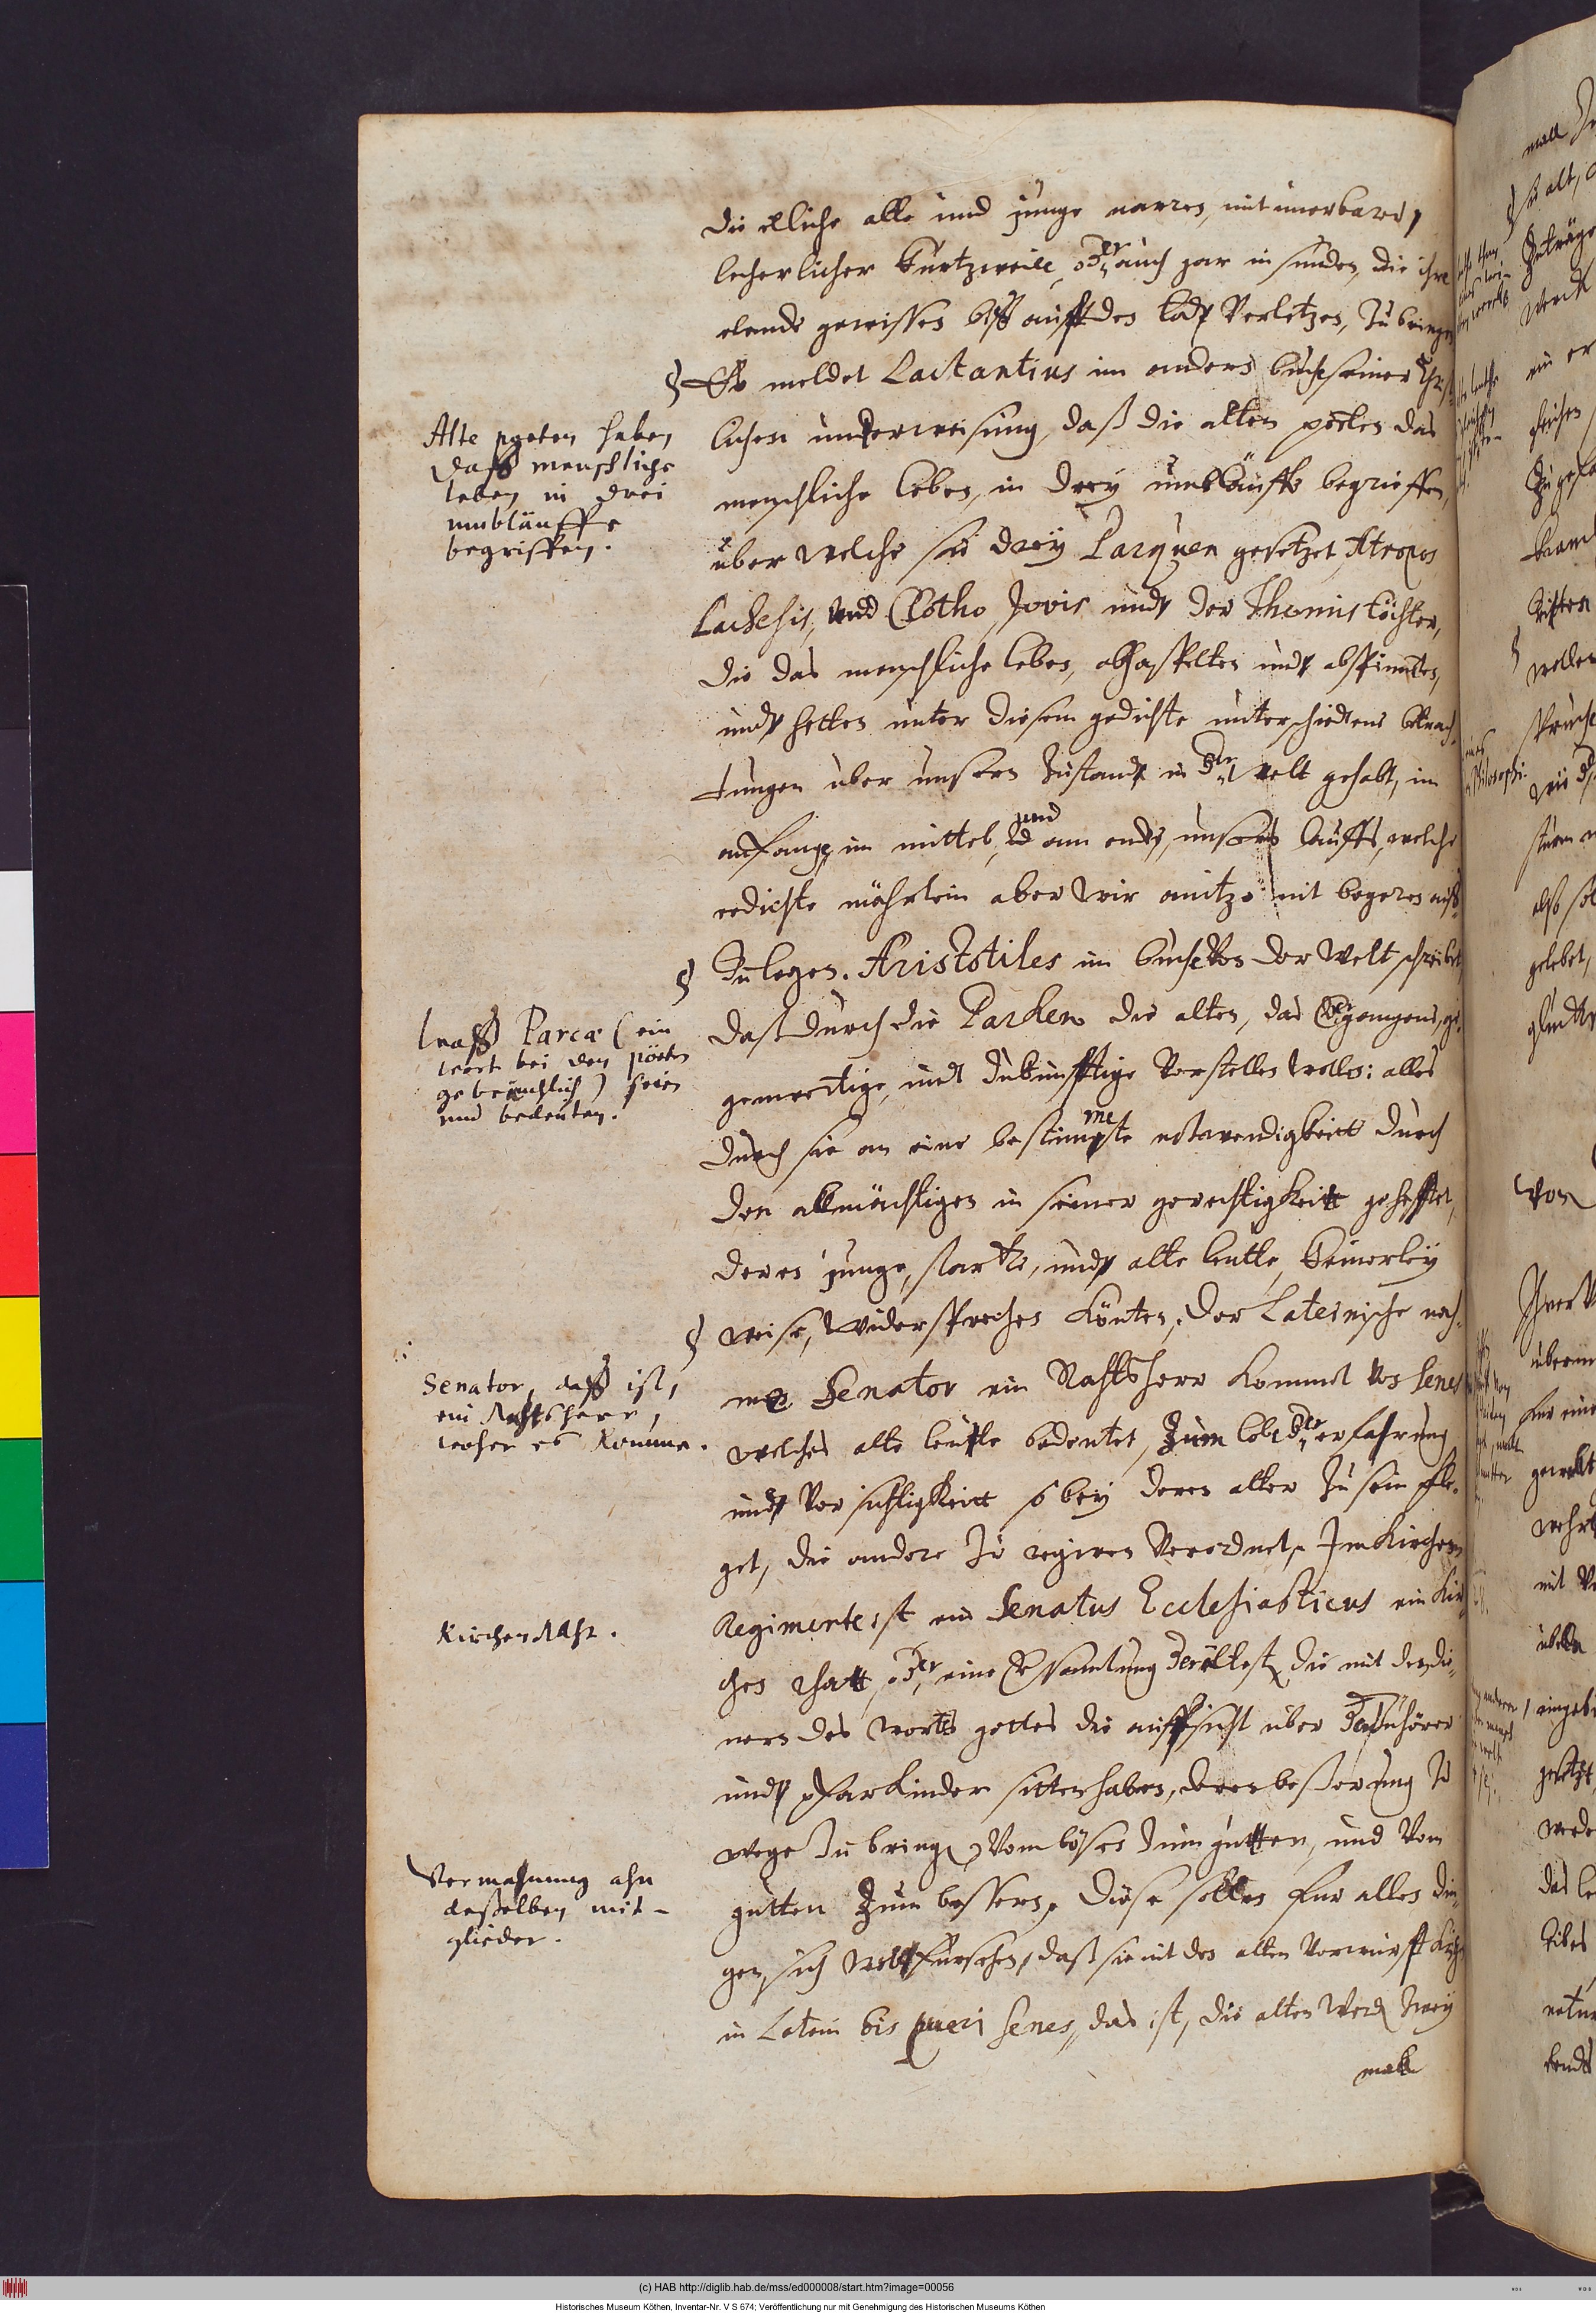 die etliche alte und junge narren, mit unerbarer,
lecherlicher kurtzweile, oder auch gar in sunden, die ihre
elende gewissen biß auff den tod verletzen, zu bringen
§ Es meldet Lactantius im andern buch seiner Christ-
lichen underweisung, daß die alten poëten das
menschliche leben, in drey umbläuffe begrieffen,
über welche sie drey Parquen gesetzet, Atropos
Lachesis, und Clotho, Jovis und der Themis töchter,
die das menschliche leben, abhaspelten und abspinnten,
und hetten unter diesem gedichte unterschiedene betrach-
tungen über unseren zustand in der welt gehabt, im
anfange, im mittel, und am ende, unsers lauffs, welche
gedichte mährlein aber wir anitzo nit begeren auß-
§ zulegen. Aristotiles im buche von der Welt schreibet,
daß durch die Parken die alten, das vergangene, ge-
genwertige, und zukünfftige vorstellen wollen: alles
durch sie an eine bestimmete notwendigkeitt durch
den allmächtigen in seiner gerechtigkeitt gehefftet,
deren junge, starcke, und alte leutte, keinerley
§ weise, widersprechen könten. Der Lateinische nah-
me Senator ein Rahtsherr kommet von Senes
welches alte leutte bedeutet, zum lobe der erfahrung
und vorsichtigkeitt so bey deren alter zu sein pfle-
get, die andere zu regiren verordnet. Im Kirchen
Regimente ist ein Senatus Ecclesiasticus ein Kir-
chen rhatt, oder eine versamlung der ältesten, die mit den die-
nern des worts gottes die auffsicht über der zuhörer
und pfarkinder sitten haben, deren beßerung zu
wege zu bringen, vom bösen zum gutten, und vom
gutten zum bessern. Diese sollen fur allen din-
gen, sich wol fursehen, daß sie nit den alten vorwurff
in Latein bis pueri senes, das ist, die alten werden zwey
mall
Alte poeten haben
daß menschliche
leben in drei
umbläuffe
begriffen.
Waß Parcæ (ein
wort bei den pöeten
gebräuchlich) seien
und bedeuten.
Senator, daß ist,
ein Rahtsherr,
woher es komme.
Kirchen Raht.
Vermahnung ahn
deßelben mit-
glieder.
(c) HAB http://diglib.hab.de/mss/ed000008/start.htm?image=00056
Historisches Museum Köthen, Inventar-Nr. V S 674; Veröffentlichung nur mit Genehmigung des Historischen Museums Köthen